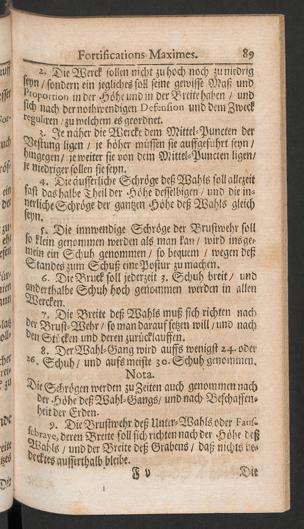 Fortifications-Maximes. 89
2. Die Werck sollen nicht zu hoch noch zu niedrig
seyn / sondern ein jegliches soll seine gewisse Maß und
Proportion in der Höhe und in der Breite haben / und
sich nach der nothwendigen Defension und dem Zweck
reguliren / zu welchem es geordnet.
3. Je näher die Wercke dem Mittel-Puncten der
Vestung ligen / je höher müssen sie auffgeführt seyn /
hingegen / je weiter sie von dem Mittel-Puncten ligen /
je niedriger sollen sie seyn.
4. Die äusserliche Schröge deß Wahls soll allezeit
fast das halbe Theil der Höhe desselbigen / und die in-
nerliche Schröge der gantzen Höhe deß Wahls gleich
seyn.
5. Die innwendige Schröge der Brustwehr soll
so klein genommen werden als man kan / wird insge-
mein ein Schuh genommen / so bequem / wegen deß
Standes zum Schuß eine Postur zu machen.
6. Die Bruck soll jederzeit 3. Schuh breit / und
anderthalbe Schuh hoch genommen werden in allen
Wercken.
7. Die Breite deß Wahls muß sich richten nach
der Brust-Wehr / so man darauf setzen will / und nach
den Stücken und deren zurücklauffen.
8. Der Wahl-Gang wird auffs wenigst 24. oder
26. Schuh / und aufs meiste 30. Schuh genommen.
Nota.
Die Schrögen werden zu Zeiten auch genommen nach
der Höhe deß Wahl-Gangs / und nach Beschaffen-
heit der Erden.
9. Die Brustwehr deß Unter-Wahls oder Faul-
sebraye, deren Breite soll sich richten nach der Höhe deß
Wahls / und der Breite deß Grabens / daß nichts be-
decktes ausserthalb bleibe.
F v Die